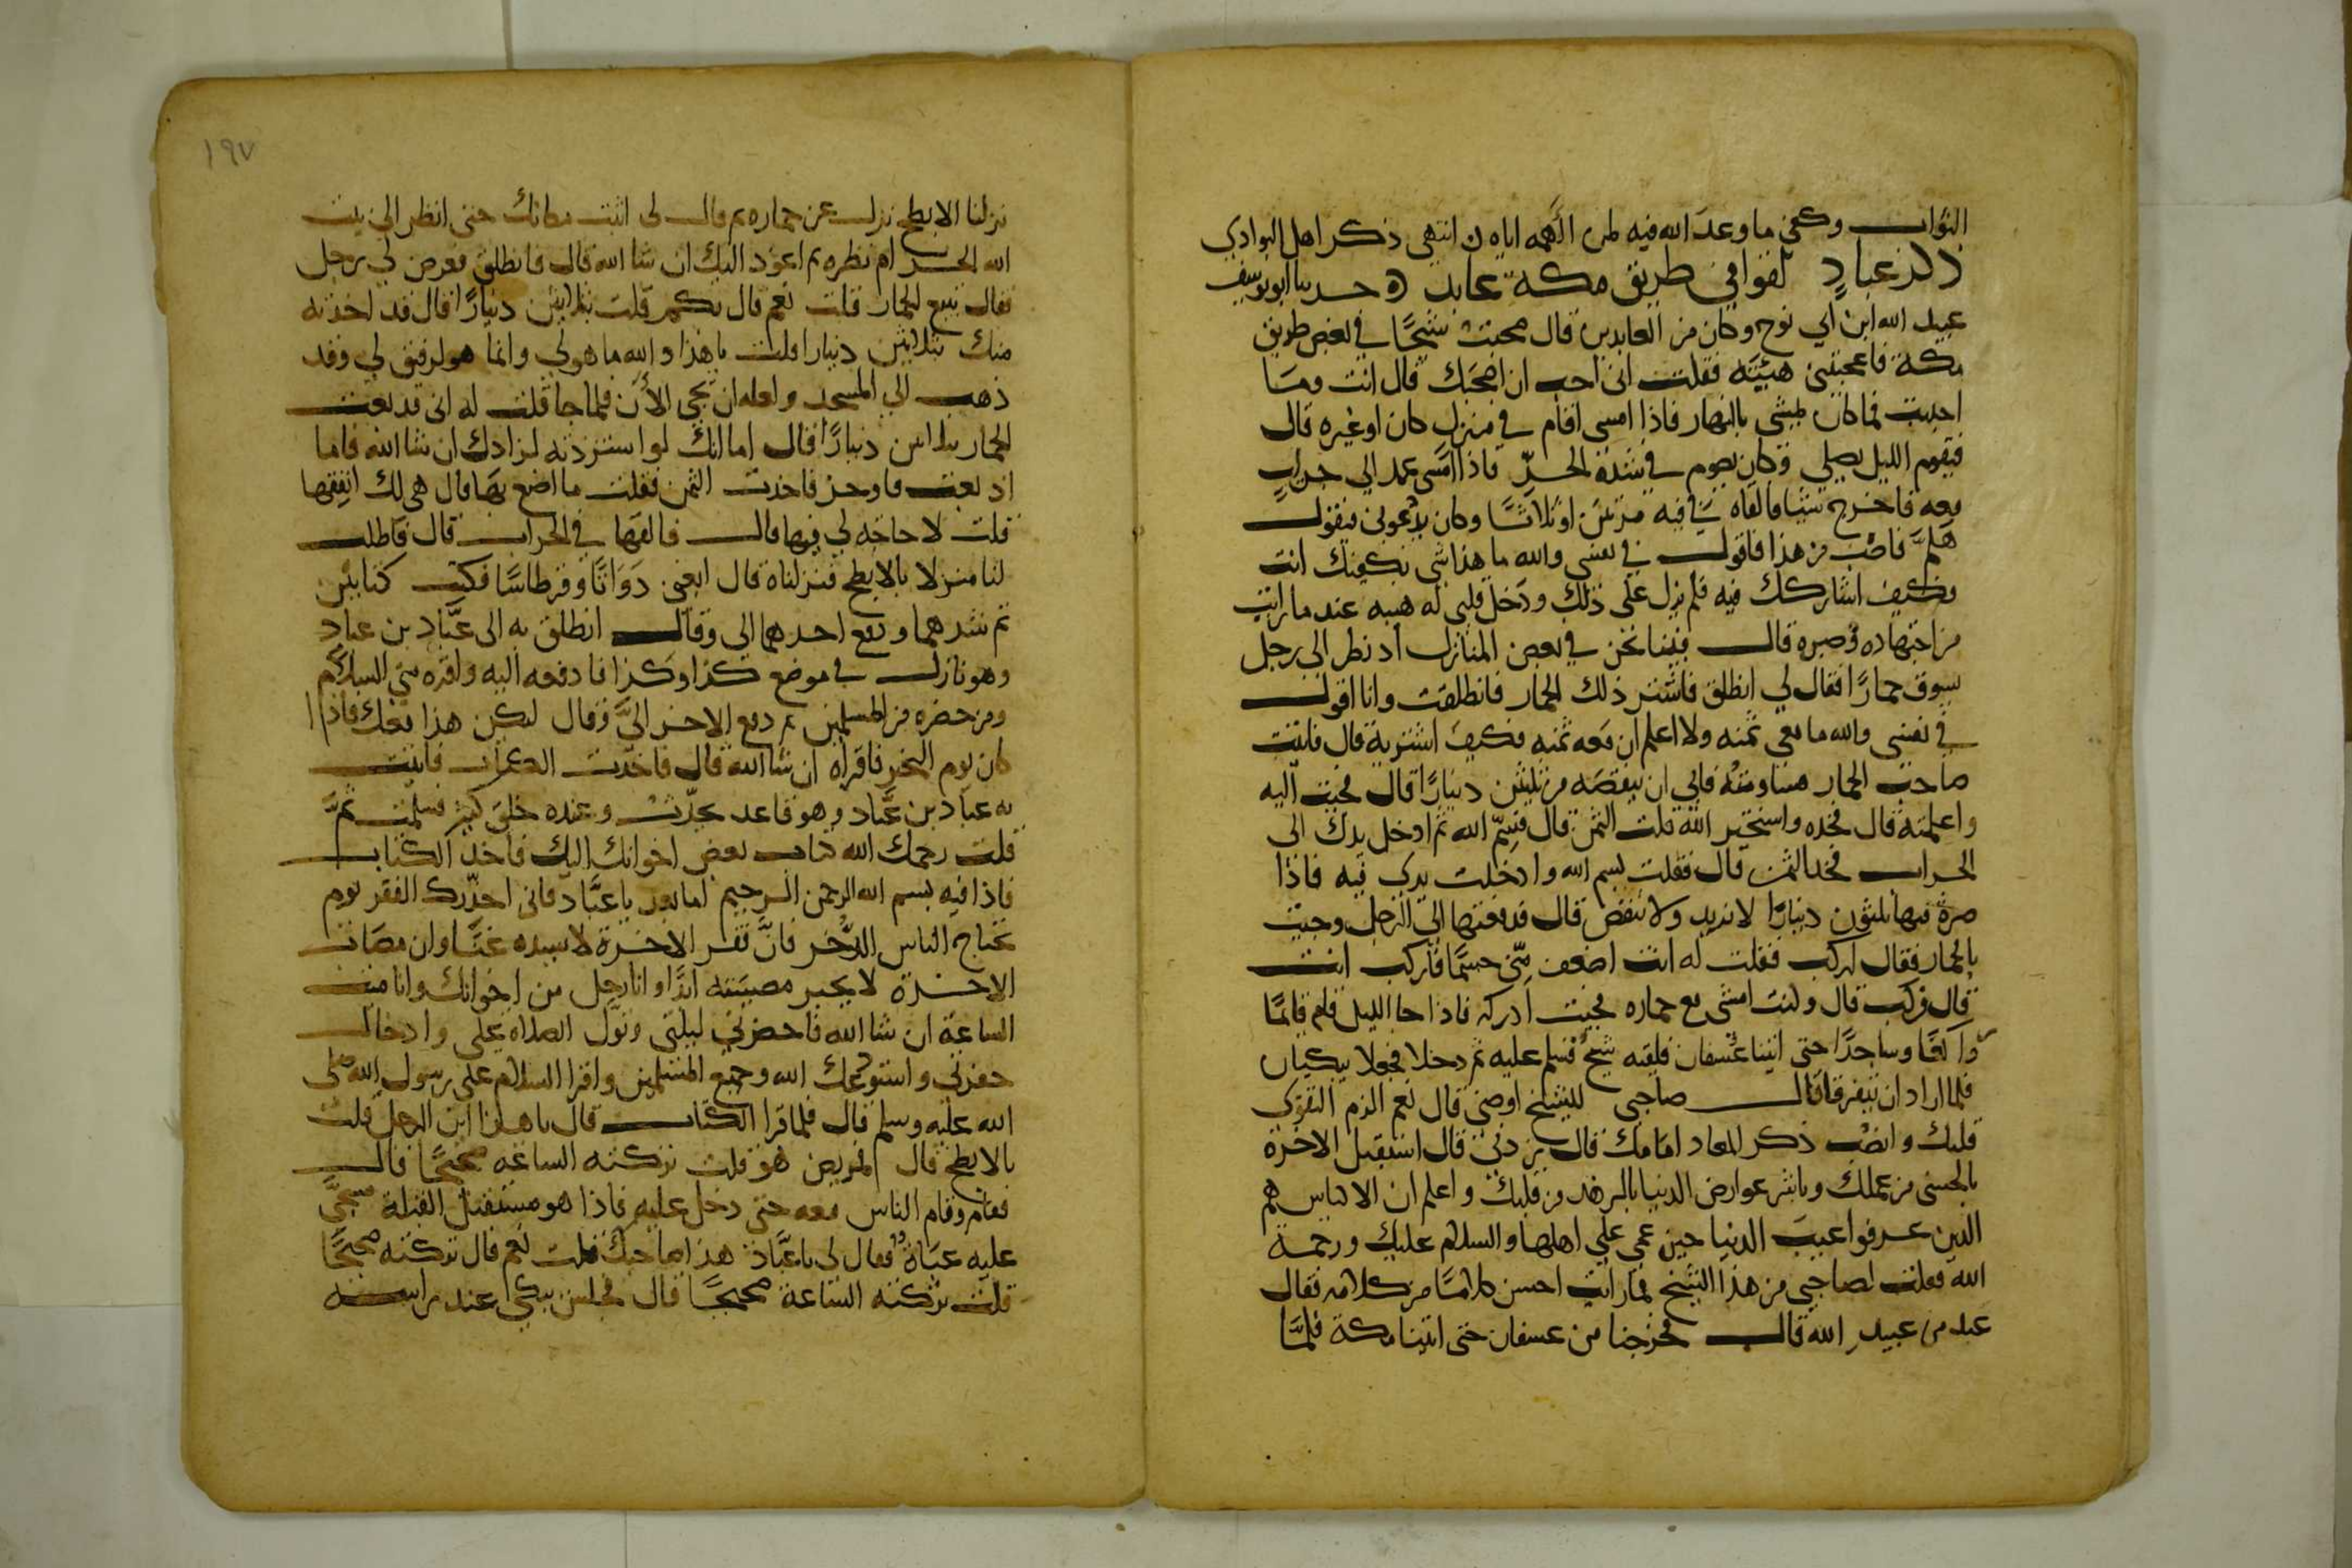 الثواب وكفى ما وعد الله فيه لمن الهمه اياه ن انتهى ذكر اهل البوادي
ذكر عباد لقوا في طريق مكة عابد ه حدثنا ابو يوسف
عبيد الله ابن ابي نوح وكان من العابدين قال صحبت شيخًا في بعض طريق
مكة فاعجبتني هيئته فقلت انى احب ان اصحبك قال انت وما
احببت فكان يمشي بالنهار فاذا امسى اقام في منزل كان او غيره قال
فيقوم الليل يصلي وكان يصوم في شدة الحرّ فاذا امسى عمد الي جراب
معه فاخرج شيا فالقاه في فيه مرتين او ثلاثًا وكان يدعوني فيقول
هلمّ فاصب من هذا فاقول في نفسى والله ما هذا شى يكفيك انت
فكيف اشاركك فيه فلم يزل على ذلك ودخل قلبى له هيبه عند ما رايت
من اجتهاده وصبره قال فبينا نحن في بعض المنازل اذ نظر الى رجل
يسوق حمارًا فقال لي انطلق فاشتر ذلك الحمار فانطلقت وانا اقول
في نفسى والله ما معي ثمنه ولا اعلم ان معه ثمنه فكيف اشتريه قال فاتيت
صاحب الحمار فساومته فابى ان ينقصه من ثلثين دينارًا قال فجيت اليه
واعلمته قال فخذه واستخير الله قلت الثمن قال فسمّ الله ثم ادخل يدك الى
الجراب فخذ الثمن قال فقلت بسم الله وادخلت يدى فيه فاذا
صرة فيها ثلثون دينارًا لا تزيد ولا تنقص قال فدفعتها الي الرجل وجيت
بالحمار فقال اركب فقلت له انت اضعف منّي جسمًا فاركب انت
قال فركب قال وكنت امشى مع حماره فحيث ادركه فاذا جا الليل قام قائمًا
وراكعًا وساجدًا حتى اتينا عسفان فلقيه شيخ فسلم عليه ثم دخلا فجعلا يبكيان
فلما اراد ان يتفرقا قال صاحبي للشيخ اوصنى قال نعم الزم التقوى
قلبك وانصب ذكر المعاد امامك قال زدنى قال استقبل الاخرة
بالحسنى من عملك وباشر عوارض الدنيا بالزهد من قلبك واعلم ان الاكياس هم
الذين عرفوا عيب الدنيا حين عمى على اهلها والسلام عليك ورحمة
الله فقلت لصاحبي من هذا الشيخ فما رايت احسن كلامًا من كلامه فقال
عبد من عبيد الله قال فخرجنا من عسفان حتى اتينا مكة فلمّا
١٩٧
نزلنا الابطح نزل عن حماره ثم قال لى اثبت مكانك حتى انظر الى بيت
الله الحرام نظره ثم اعود اليك ان شا الله قال فانطلق فعرض لي رجل
فقال تبيع الحمار قلت نعم قال بكم قلت بثلاثين دينارًا قال قد اخذته
منك بثلاثين دينارا قلت يا هذا والله ما هو لي وانما هو لرفيق لي وقد
ذهب الي المسجد ولعله ان يجى الأن فلما جا قلت له انى قد بعت
الحمار بثلاثين دينارًا قال اما انك لو استزدته لزادك ان شا الله فاما
اذ بعت فاوجز فاخذت الثمن فقلت ما اصنع بها قال هى لك انفقها
قلت لا حاجه لي فيها قال فالقها في الجراب قال فاطلب
لنا منزلا بالابطح فنزلناه قال ابغنى دَوَاتًا وقرطاسًا فكتب كتابين
ثم شدهما ودفع احدهما الي وقال انطلق به الى عبّاد بن عباد
وهو نازل في موضع كذا وكذا فادفعه اليه واقره منى السلام
ومن حضره من المسلمين ثم دفع الاخر اليَّ وقال ليكن هذا معك فاذا
كان يوم النحر فاقراه ان شا الله قال فاخذت الكتاب فاتيت
به عباد بن عبّاد وهو قاعد يحدّث وعنده خلق كثير فسلمت ثمّ
قلت رحمك الله كتاب بعض اخوانك اليك فاخذ الكتاب
فاذا فيه بسم الله الرحمن الرحيم اما بعد يا عبّاد فانى احذّرك الفقر يوم
يحتاج الناس الى الذّخر فانّ فقر الاخرة لا يسده غنًا وان مصاب
الاخرة لا يجبر مصيبته ابدًا وانا رجل من اخوانك وانا ميت
الساعة ان شا الله فاحضرنى لتلينى وتول الصلاه على وادخال
حفرتى واستودعك الله وجميع المسلمين واقرا السلام على رسول الله صلى
الله عليه وسلم قال فلما قرا الكتاب قال يا هذا اين الرجل قلت
بالابطح قال امريض هو قلت تركته الساعه صحيحًا قال
فقام وقام الناس معه حتى دخل عليه فاذا هو مستقبل القبلة مسجّى
عليه عباة فقال لى يا عبّاد هذا صاحبك قلت نعم قال تركته صحيحًا
قلت تركته الساعة صحيحًا قال فجلس يبكي عند راسه